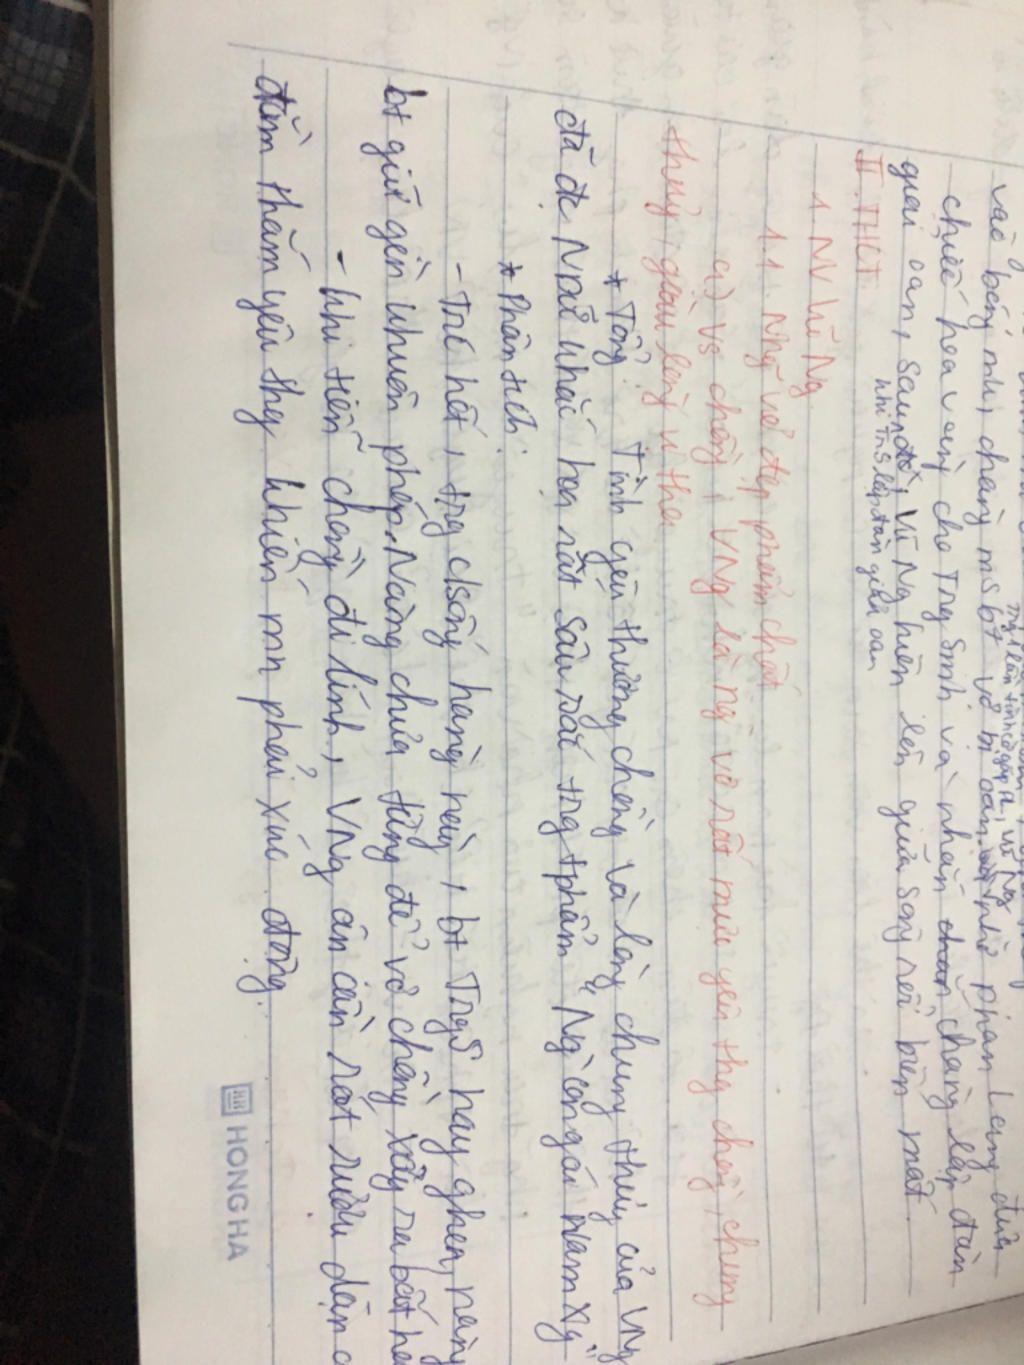 vào bóng mh, chàng ms bt vợ bị oan, nhờ phan Lang đưa
chiếc hoa vàng cho Trg Sinh và nhắn chàng lập đàn
giải oan, sau đó, Vũ Ng hiện lên giữa sông rồi biến mất.
khi TrS lập đàn giải oan
II. THCT
1. NV Vũ Ng
1.1. Ng vẻ đẹp phẩm chất
a) Vs chồng, VNg là ng vợ rất mực yêu thg chồng, chung
thủy, giàu lòng vị tha
* Tổng: Tình yêu thương chồng và lòng chung thủy của VNg
đã đc NDữ khắc họa rất sâu sắc trg tphẩm "Ng con gái Nam Xg"
* Phân tích:
- Trc hết, trg csống hàng ngày, bt TrgS hay ghen, nàng
bt giữ gìn khuôn phép. Nàng chưa từng để vợ chồng xảy ra bất hòa
- Khi tiễn chồng đi lính, VNg ân cần rót rượu dặn
đằm thắm yêu thg khiến mn phải xúc động.
HONG HA